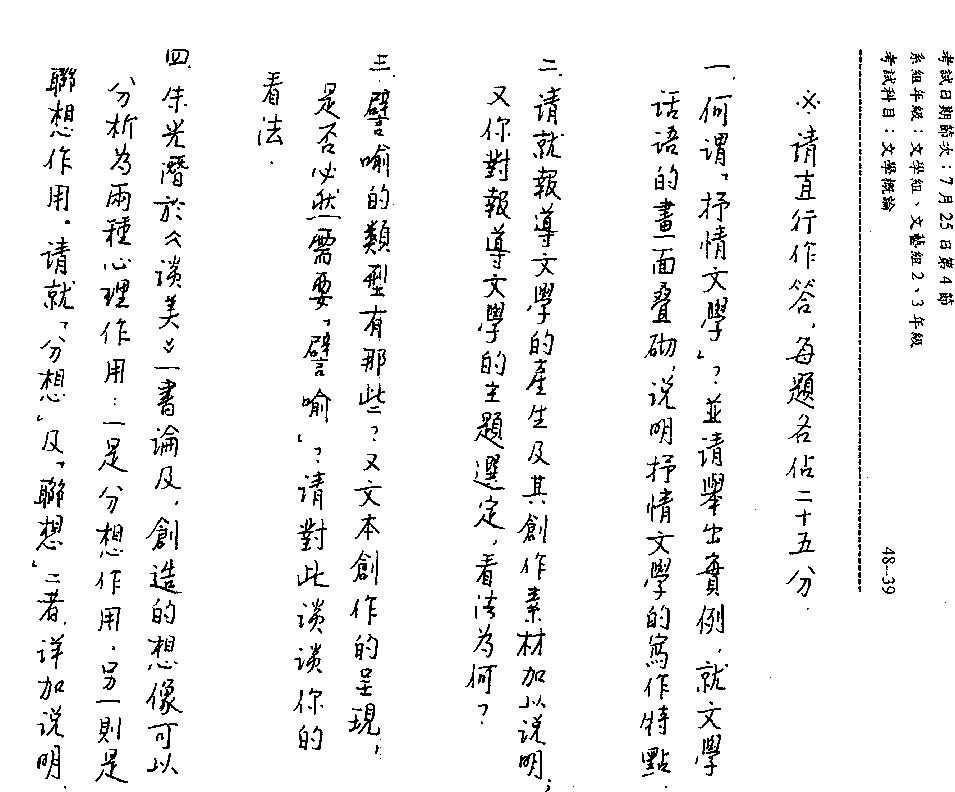 考試日期節次：7月25日第4節
系組年級：文學組、文藝組2、3年級
考試科目：文學概論
48-39
※請直行作答，每題各佔二十五分．
一.何謂「抒情文學」？並請舉出實例，就文學
話語的畫面疊砌，說明抒情文學的寫作特點．
二.請就報導文學的產生及其創作素材加以說明；
又你對報導文學的主題選定，看法為何？
三.譬喻的類型有那些？又文本創作的呈現，
是否必然需要「譬喻」？請對此談談你的
看法．
四.朱光潛於《談美》一書論及，創造的想像可以
分析為兩種心理作用：一是分想作用．另一則是
聯想作用。請就「分想」及「聯想」二者，詳加說明．